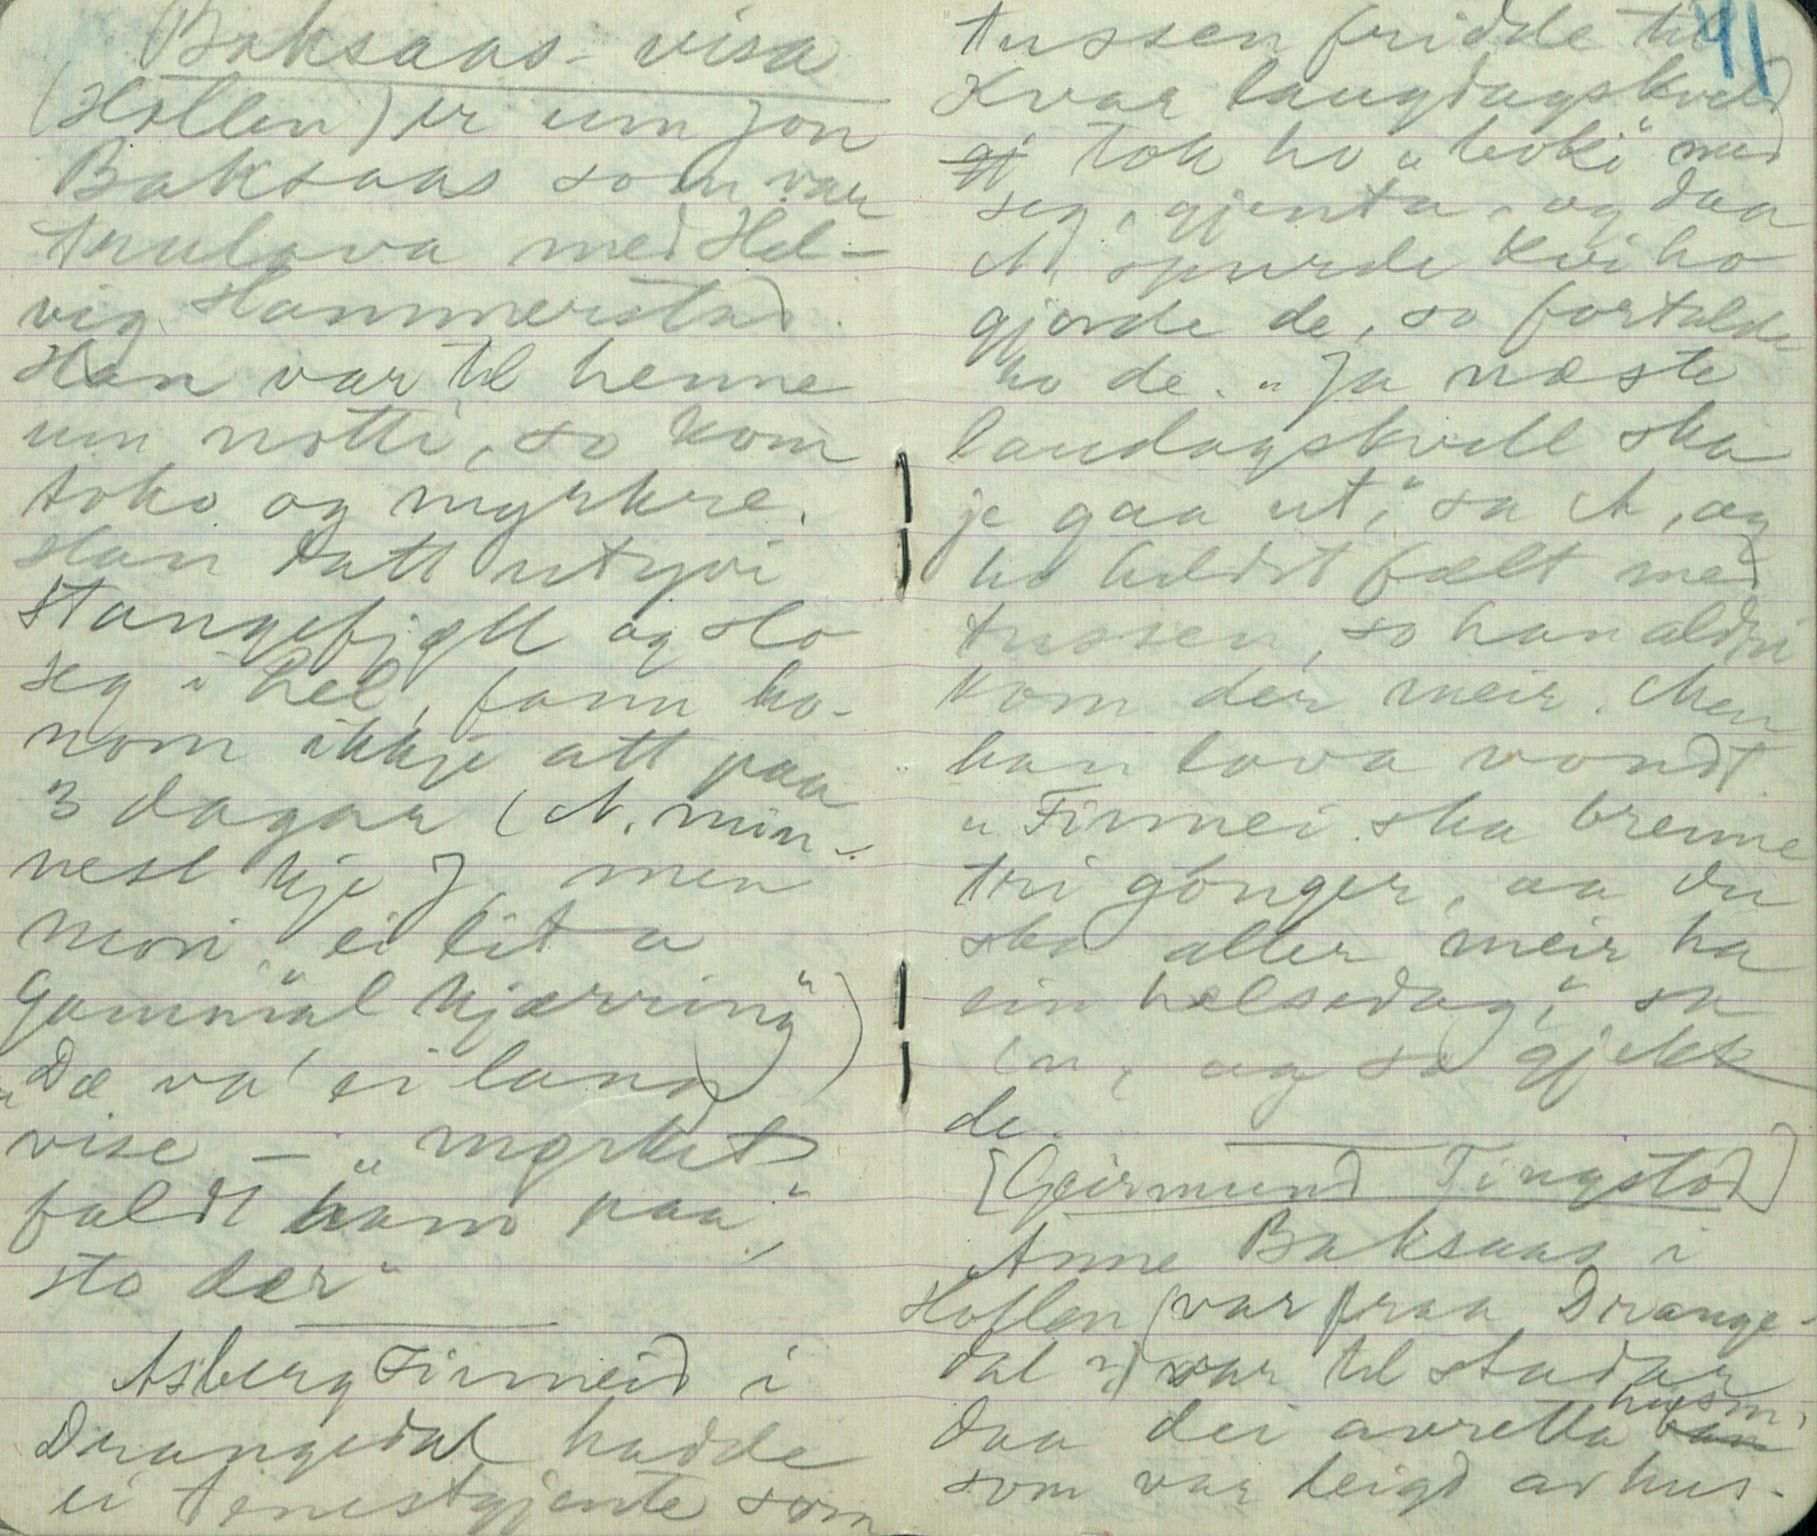 Baksaas-visa
(Hollen) er um Jon
Baksaas som var
trulova med Hel-
vig Hammerstad.
Han var til henne
um notti, so kom
toko og myrkre.
Han datt utyvi
Stangefjell og slo
seg i hel, fann ho-
nom ikkje att paa
3 dagar (A. min-
nest kje), men
mori "ei lita
gammal kjærring")
"Dæ va' ei lang
vise - "myrket
faldt ham paa,"
sto dær"
Asberg Finneid i
Drangedal hadde
ei tenestgjente som
41
tussen fridde til
Kvar laugdagskveld
tok ho "boki" med
seg, gjenta, og daa
A. spurde kvi ho
gjorde de, so fortalde
ho de. "Ja næste
laudagskvell ska
je gaa ut," sa A, og
ho heldt fælt med
tussen, so han aldri
kom der meir. Men
han lova vondt
"Finnei ska brenne
tri gonger, aa du
ska aller meir ha
ein helsedag," sa
'n, og so gjekk
de.
[Geirmund Tingstad]
Anne Baksaas i
Hollen (var fraa Drange-
dal ?) var til stadar
daa dei avretta husm.
som var leigd av hus-